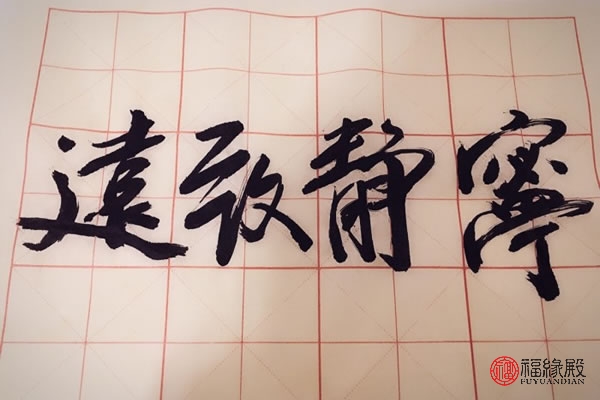 寧静致遠
福緣殿
FUYUANDIAN